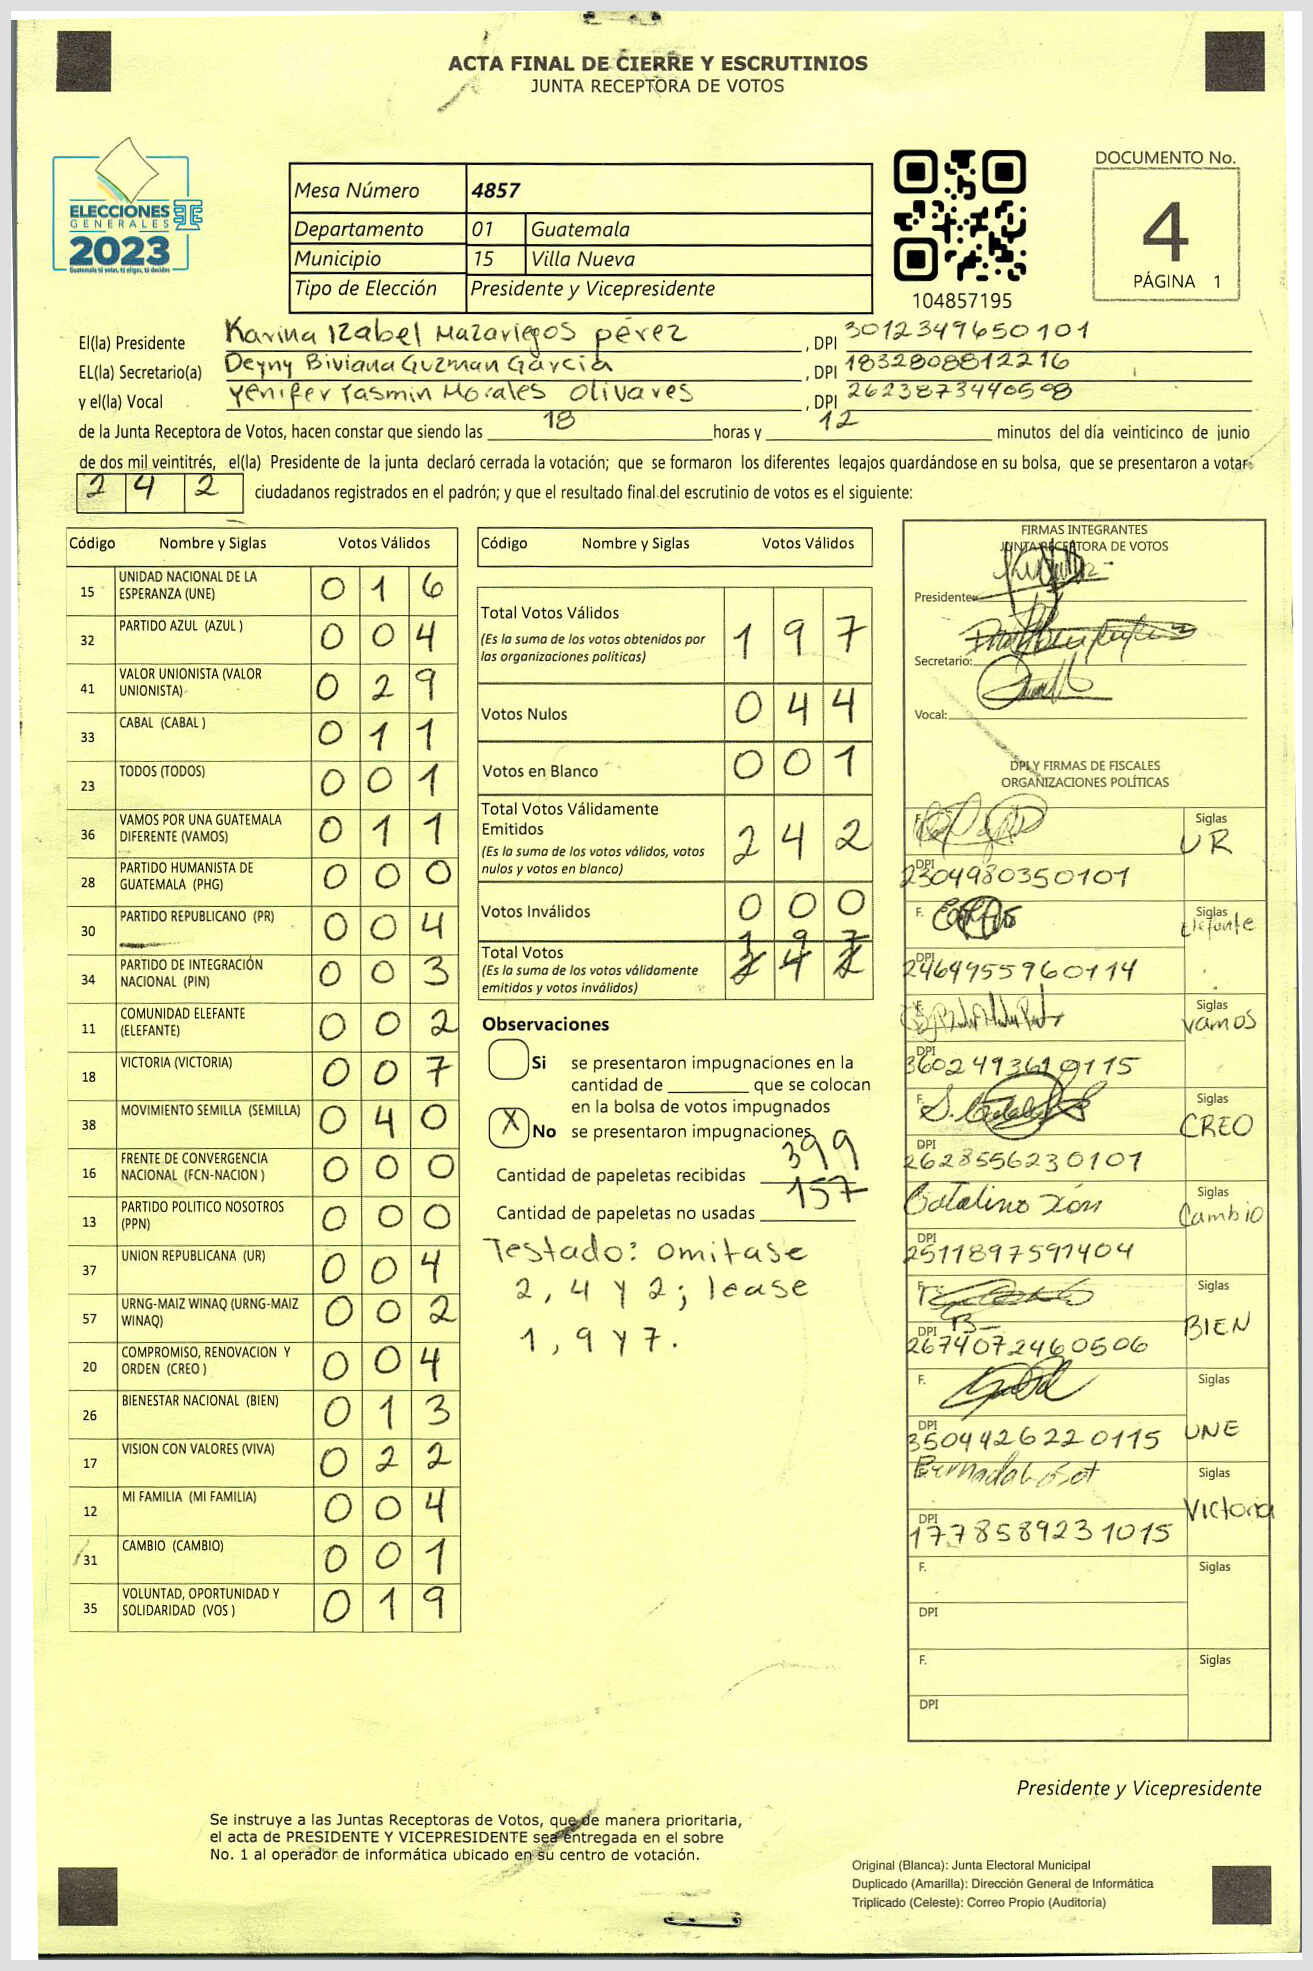 ACTA FINAL DE CIERRE Y ESCRUTINIOS
JUNTA RECEPTORA DE VOTOS
ELECCIONES
GENERALES
2023
Guatemala tú votas, tú eliges, tú decides
Mesa Número 4857
Departamento 01 Guatemala
Municipio 15 Villa Nueva
Tipo de Elección Presidente y Vicepresidente
104857195
DOCUMENTO No.
4
PÁGINA 1
El(la) Presidente Karina Izabel Mazariegos pérez, DPI 3012349650101
EL(la) Secretario(a) Deyny Biviana Guzman Garcia, DPI 1832808812216
y el(la) Vocal Yenifer Yasmin Morales Olivares, DPI 2623873440598
de la Junta Receptora de Votos, hacen constar que siendo las 18 horas y 12 minutos del día veinticinco de junio
de dos mil veintitrés, el(la) Presidente de la junta declaró cerrada la votación; que se formaron los diferentes legajos guardándose en su bolsa, que se presentaron a votar
2 4 2 ciudadanos registrados en el padrón; y que el resultado final del escrutinio de votos es el siguiente:
Código Nombre y Siglas Votos Válidos
15 UNIDAD NACIONAL DE LA
ESPERANZA (UNE) 0 1 6
32 PARTIDO AZUL (AZUL ) 0 0 4
41 VALOR UNIONISTA (VALOR
UNIONISTA) 0 2 9
33 CABAL (CABAL ) 0 1 1
23 TODOS (TODOS) 0 0 1
36 VAMOS POR UNA GUATEMALA
DIFERENTE (VAMOS) 0 1 1
28 PARTIDO HUMANISTA DE
GUATEMALA (PHG) 0 0 0
30 PARTIDO REPUBLICANO (PR) 0 0 4
34 PARTIDO DE INTEGRACIÓN
NACIONAL (PIN) 0 0 3
11 COMUNIDAD ELEFANTE
(ELEFANTE) 0 0 2
18 VICTORIA (VICTORIA) 0 0 7
38 MOVIMIENTO SEMILLA (SEMILLA) 0 4 0
16 FRENTE DE CONVERGENCIA
NACIONAL (FCN-NACION ) 0 0 0
13 PARTIDO POLITICO NOSOTROS
(PPN) 0 0 0
37 UNION REPUBLICANA (UR) 0 0 4
57 URNG-MAIZ WINAQ (URNG-MAIZ
WINAQ) 0 0 2
20 COMPROMISO, RENOVACION Y
ORDEN (CREO ) 0 0 4
26 BIENESTAR NACIONAL (BIEN) 0 1 3
17 VISION CON VALORES (VIVA) 0 2 2
12 MI FAMILIA (MI FAMILIA) 0 0 4
31 CAMBIO (CAMBIO) 0 0 1
35 VOLUNTAD, OPORTUNIDAD Y
SOLIDARIDAD (VOS ) 0 1 9
Código Nombre y Siglas Votos Válidos
Total Votos Válidos 1 9 7
(Es la suma de los votos obtenidos por
las organizaciones políticas)
Votos Nulos 0 4 4
Votos en Blanco 0 0 1
Total Votos Válidamente
Emitidos 2 4 2
(Es la suma de los votos válidos, votos
nulos y votos en blanco)
Votos Inválidos 0 0 0
1 9 7
Total Votos 2 4 2
(Es la suma de los votos válidamente
emitidos y votos inválidos)
Observaciones
Si se presentaron impugnaciones en la
cantidad de ________ que se colocan
en la bolsa de votos impugnados
X No se presentaron impugnaciones
Cantidad de papeletas recibidas 399
Cantidad de papeletas no usadas 157
Testado: omitase
2, 4 y 2; lease
1, 9 y 7.
FIRMAS INTEGRANTES
JUNTA RECEPTORA DE VOTOS
Presidente:
Secretario:
Vocal:
DPI Y FIRMAS DE FISCALES
ORGANIZACIONES POLÍTICAS
F. Siglas
UR
DPI
2304980350101
F. Siglas
Elefante
DPI
2464955960114
F. Siglas
Vamos
DPI
3602493610115
F. Siglas
CREO
DPI
2628556230101
Catalino Xón Siglas
Cambio
DPI
2511897591404
F. Siglas
BIEN
DPI
2674072460506
F. Siglas
UNE
DPI
3504426220115
Siglas
Victoria
DPI
1778589231015
F. Siglas
DPI
F. Siglas
DPI
Presidente y Vicepresidente
Se instruye a las Juntas Receptoras de Votos, que de manera prioritaria,
el acta de PRESIDENTE Y VICEPRESIDENTE sea entregada en el sobre
No. 1 al operador de informática ubicado en su centro de votación.
Original (Blanca): Junta Electoral Municipal
Duplicado (Amarilla): Dirección General de Informática
Triplicado (Celeste): Correo Propio (Auditoría)